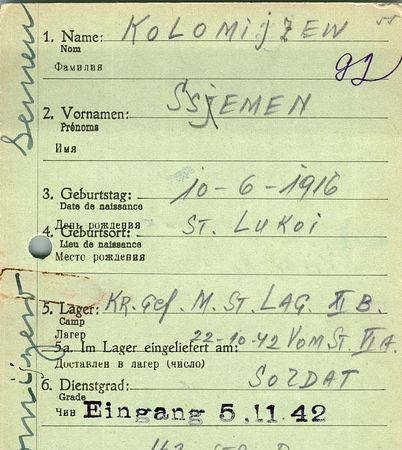 1. Name: KOLOMIJZEW
Nom
Фамилия
92
2. Vornamen: SSJEMEN
Prénoms
Имя
3. Geburtstag: 10-6-1916
Date de naissance
День рождения
4. Geburtsort: ST. LUKOI
Lieu de naissance
Место рождения
5. Lager: KR. Gef. M. ST. LAG. II B.
Camp
Лагерь
22-10-42 VOM ST. VI A.
5a. Im Lager eingeliefert am:
Доставлен в лагер (число)
6. Dienstgrad: SOLDAT
Grade
Чин Eingang 5.11.42
Semen